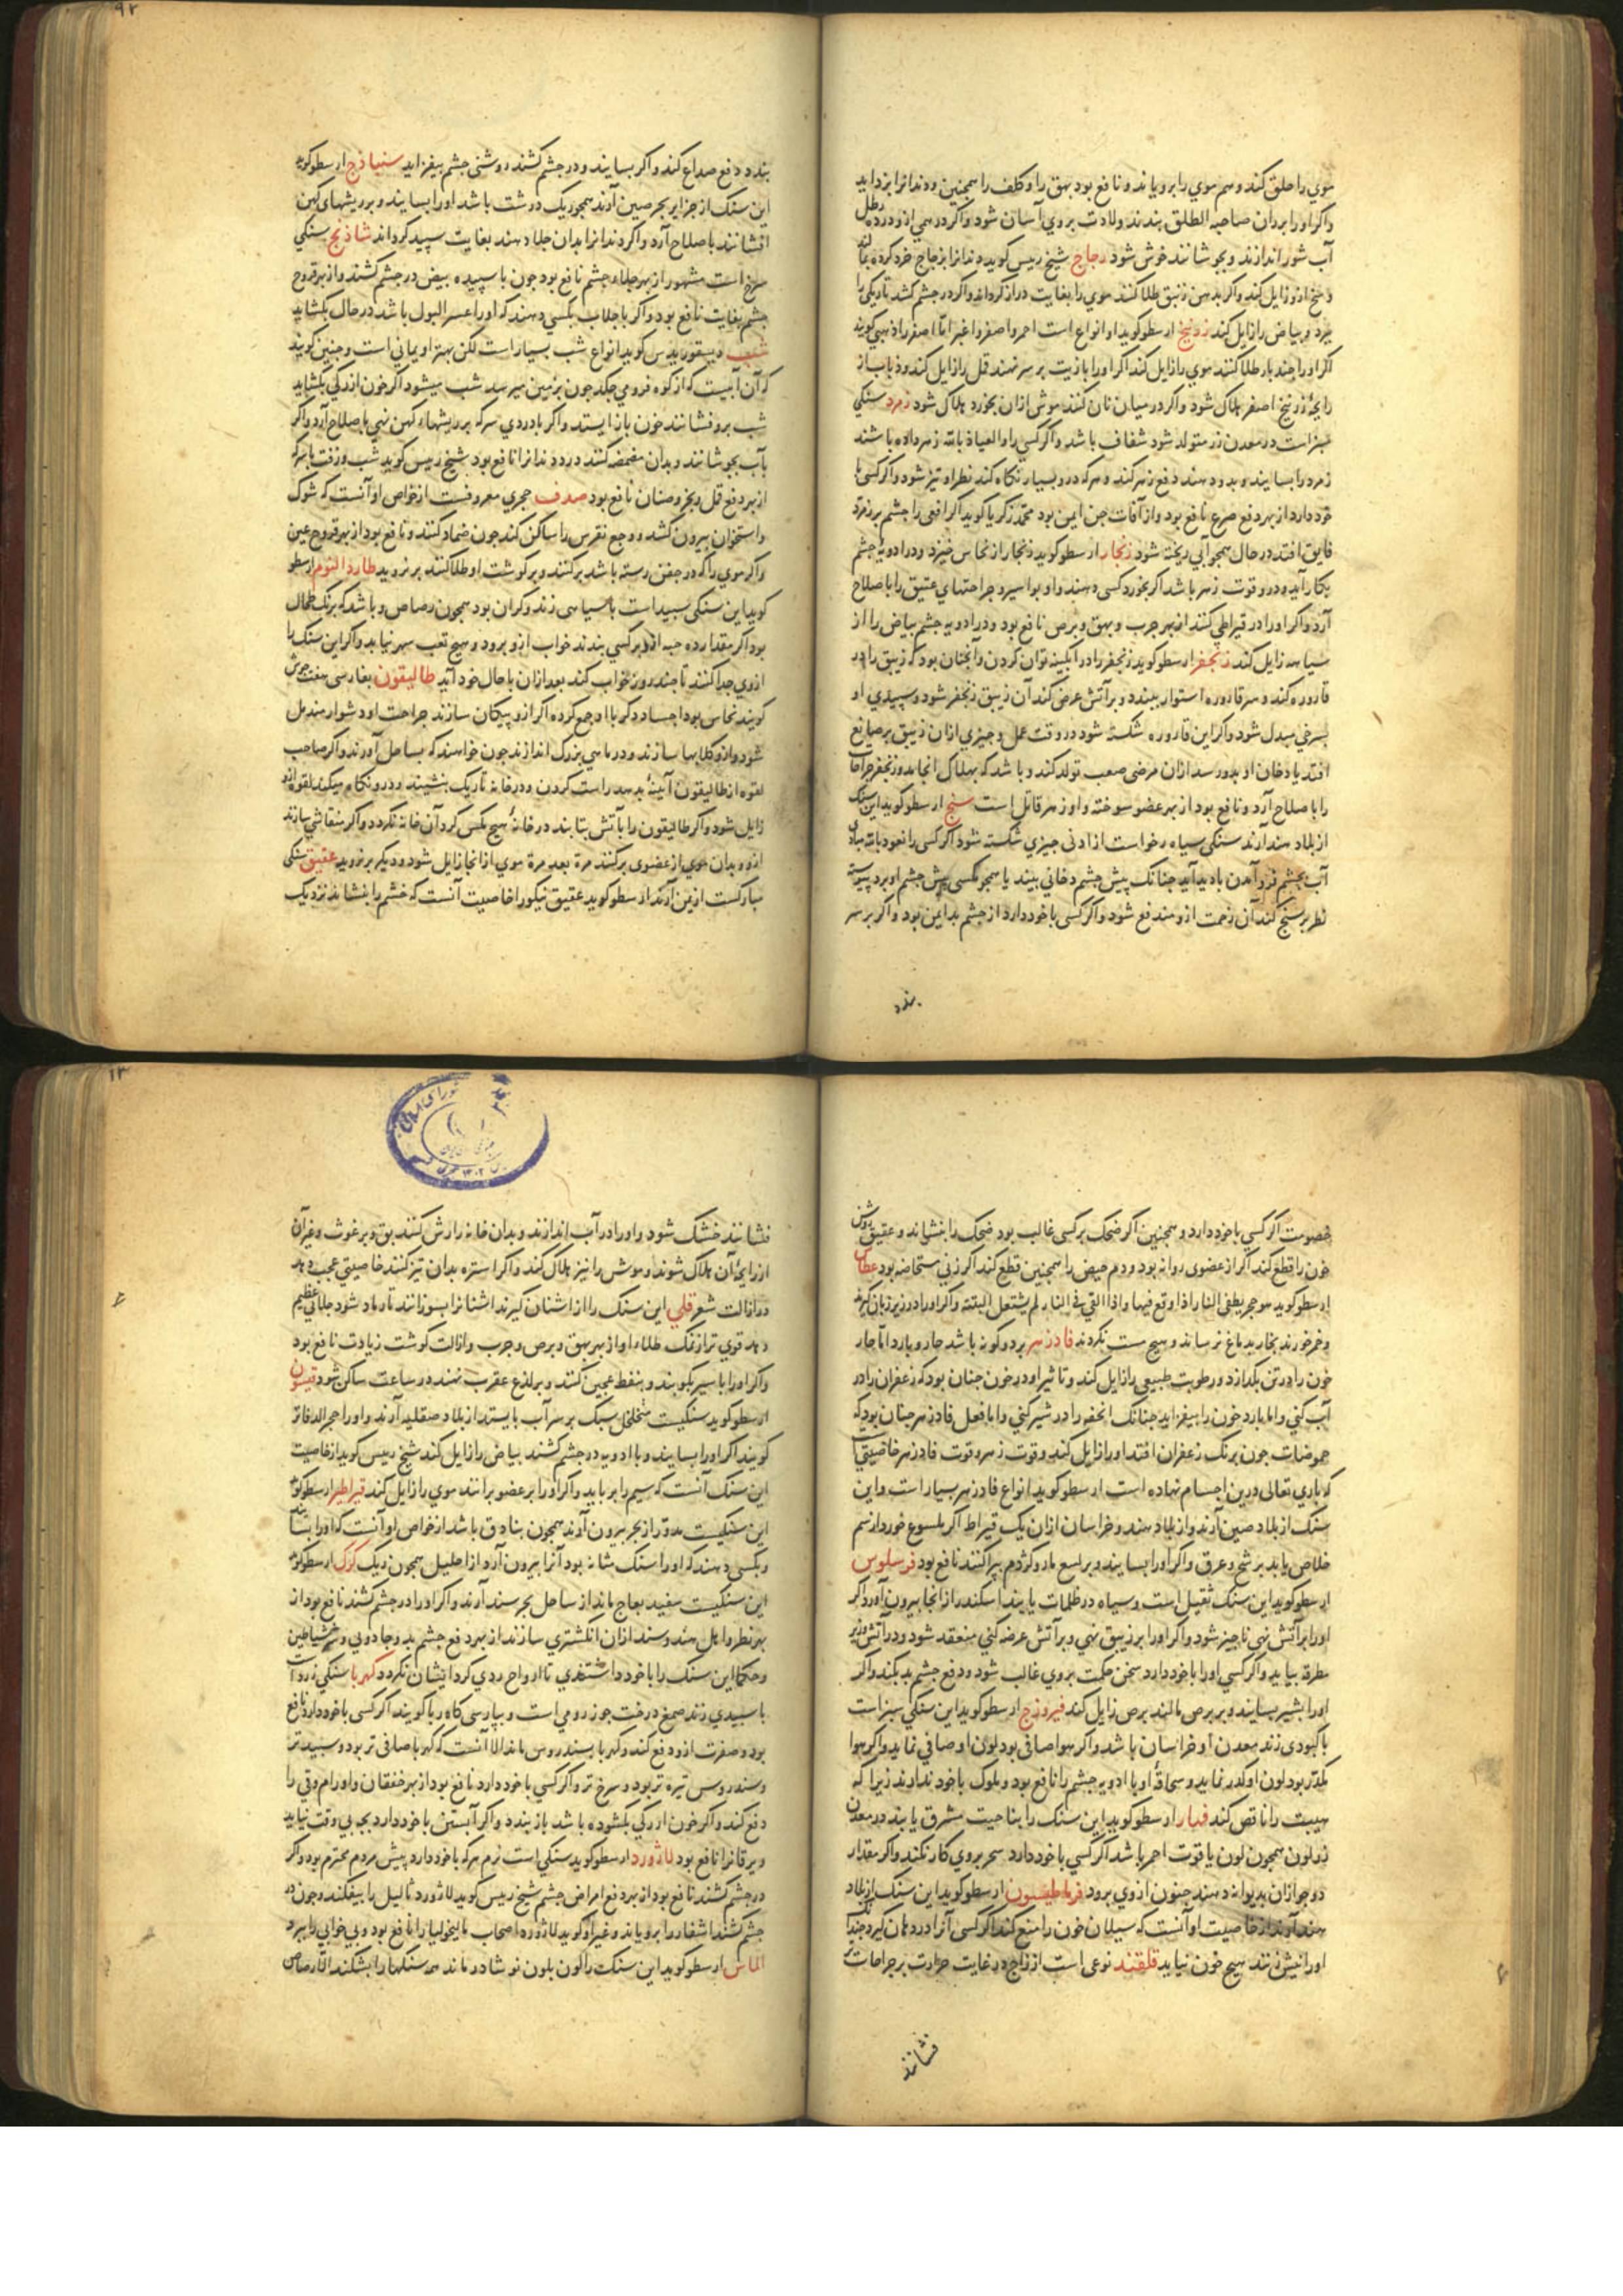 موی را حلق کند و هم موی را برویاند و نافع بود بهق را و کلف را همچنین و دندانرا بزداید
واکر اورا بر ران صاحبة الطلق بندند ولادت بروی آسان شود واکر درهمی ازو در ده رطل
آب شور اندازند و بجوشانند خوش شود زجاج شیخ رییس کوید دندانرا بزجاج خرد کرده
وسخ ازو زایل کند واکر بدهن زنبق طلا کنند موی را بغایت دراز کرداند واکر در چشم کشد تاریکی را
ببرد و بیاض را زایل کند زرنیخ ارسطو کوید او انواع است احمر و اصفر و اغبر اما اصفر را ذهبی کویند
اکر اورا چند بار طلا کنند موی را زایل کند اکر اورا با زیت بر سر نهند قمل را زایل کند و ذباب از
رایحهٔ زرنیخ اصفر هلاک شود واکر در میان نان کنند موش ازان بخورد هلاک شود زمرد سنکی
سبز است در معدن زر متولد شود شفاف باشد واکر کسی را والعیاذ بالله زهر داده باشند
زمرد را بسایند و بدو دهند دفع زهر کند و هرکه درو بسیار نکاه کند نظر او تیز شود واکر کسی با
خود دارد از بهر دفع صرع نافع بود و از آفات جن ایمن بود محمد زکریا کوید اکر افعی را چشم بر زمرد
فایق افتد در حال همچو آبی ریخته شود زنجار ارسطو کوید زنجار از نحاس خیزد و در ادویهٔ چشم
بکار آید و درو قوت زهر باشد اکر بخورد کسی دهند و او بواسیر و جراحتهای عتیق را باصلاح
آرد واکر اورا در قیراطی کنند از بهر جرب و بهق و برص نافع بود و در ادویه چشم بیاض را از
سیاهه زایل کند زنجفر ارسطو کوید زنجفر را در آبکینه توان کردن و آنچنان بود که زیبق را در
قاروره کند و سر قاروره استوار ببندد و بر آتش عرض کند آن زیبق زنجفر شود و سپیدی او
بسرخی مبدل شود واکر این قاروره شکسته شود در وقت عمل و چیزی ازان زیبق بر صانع
افتد یا دخان او بدو رسد ازان مرضی صعب تولد کند و باشد که بهلاک انجامد و زنجفر جراحات
را باصلاح آرد و نافع بود از بهر عضو سوخته و او زهر قاتل است سبج ارسطو کوید این سنک
از بلاد هند آرند سنکی سیاه رخو است از ادنی چیزی شکسته شود اکر کسی را نعوذ بالله مبادی
آب بچشم فرو آمدن بادید آید چنانک پیش چشم دخانی بیند یا همچو مکسی پیش چشم او برد پیوسته
نظر بر سبج کند آن زحمت ازو مندفع شود واکر کسی با خود دارد از چشم بد ایمن بود واکر بر سر
بندد
بندد دفع صداع کند واکر بسایند و در چشم کشند روشنی چشم بیفزاید سنباذج ارسطو کوید
این سنک از جزایر بحر صین آرند همچو ریک درشت باشد اورا بسایند و بر ریشهای کهن
افشانند باصلاح آرد واکر دندانرا بدان جلا دهند بغایت سپید کرداند شاذنج سنکی
سرخ است مشهور از بهر جلاء چشم نافع بود چون با سپیده بیض در چشم کشند و از بهر قروح
چشم بغایت نافع بود واکر با جلاب بکسی دهند که اورا عسر البول باشد در حال بکشاید
شب دیسقوریدس کوید انواع شب بسیار است لکن بهتر او یمانی است و چنین کویند
که آن آبیست که از کوه فرو می چکد چون بزمین میرسد شب میشود اکر خون از رکی بکشاید
شب برو فشانند خون باز ایستد واکر با دردی سرکه بر ریشهاء کهن نهی باصلاح آرد واکر
بآب بجوشانند و بدان مضمضه کنند درد دندانرا نافع بود شیخ رییس کوید شب و زفت با سرکه
از بهر دفع قمل و بخر و صنان نافع بود صدف حجری معروفست از خواص او آنست که شوک
و استخوان بیرون کشد و وجع نقرس را ساکن کند چون ضماد کنند و نافع بود از بهر قروح عین
واکر موی را که در جفن رسته باشد برکنند و بر کوشت او طلا کنند بر نروید طارد النوم ارسطو
کوید این سنکی سپید است با سیاهی زند و کران بود همچون رصاص و باشد که برنک طحال
بود اکر مقدار ده حبه ازو بر کسی بندند خواب ازو برود و هیچ تعب سهر نیابد واکر این سنک را
ازوی جدا کنند تا چند روز خواب کند بعد ازان باحال خود آید طالیقون بفارسی هفت جوش
کویند نحاس بود اجساد دکر با او جمع کرده اکر ازو پیکان سازند جراحت او دشوار مندمل
شود و ازو کلابها سازند و در ماهی بزرک اندازند چون خواهند که بساحل آورند واکر صاحب
لقوه از طالیقون آینهٔ بدست راست کردن و در خانه تاریک بنشیند و درو نکاه میکند لقوه ازو
زایل شود واکر طالیقون را بآتش بتابند در خانهٔ هیچ مکس کرد آن خانه نکردد واکر منقاشی سازند
ازو و بدان موی از عضوی برکنند مرة بعد مرة موی از آنجا زایل شود و دیکر بر نروید عقیق سنکی
مبارکست از یمن آرند ارسطو کوید عقیق نیکو را خاصیت آنست که خشم را بنشاند نزدیک
خصومت اکر کسی با خود دارد و همچنین اکر ضحک بر کسی غالب بود ضحک را بنشاند و عقیق روشن
خون را قطع کند اکر از عضوی روانه بود و دم حیض را همچنین قطع کند اکر زنی مستحاضه بود عطاس
ارسطو کوید هو حجر یطفی النار اذا وقع فیها و اذا القی فی النار لم یشتعل البتته واکر اورا در زیر زبان کیرند
و خمر خورند بخار بدماغ نرساند و هیچ مست نکردند فادزهر بر دو کونه باشد حار و بارد اما حار
خون را در تن بکدازد و رطوبت طبیعی را زایل کند و تاثیر او در خون چنان بود که زعفران را در
آب کنی و اما بارد خون را بیفزاید چنانک انفحه را در شیر کنی و اما فعل فادزهر چنان بود که
حموضات چون برنک زعفران افتد اورا زایل کند و قوت زهر و قوت فادزهر خاصیتی است
که باری تعالی درین اجسام نهاده است ارسطو کوید انواع فادزهر بسیار است و این
سنک از بلاد صین آرند و از بلاد هند و خراسان ازان یک قیراط اکر ملسوع خورد از سم
خلاص یابد برشح و عرق واکر اورا بسایند و بر لسع مار و کژدم پراکنند نافع بود فرسلوس
ارسطو کوید این سنک ثقیل است و سیاه در ظلمات یابند اسکندر از آنجا بیرون آورد اکر
اورا بر آتش نهی ناچیز شود واکر اورا بر زیبق نهی و بر آتش عرضه کنی منعقد شود و در آتش و زیر
مطرقه بیاید واکر کسی اورا با خود دارد سخن حکمت بروی غالب شود و دفع چشم بد بکند واکر
اورا بشیر بسایند و بر برص مالند برص زایل کند فیروزج ارسطو کوید این سنکی سبز است
با کبودی زند معدن او خراسان باشد واکر هوا صافی بود لون او صافی نماید واکر هوا
مکدر بود لون او کدر نماید و سحاقهٔ او با ادویه چشم را نافع بود و ملوک با خود ندارند زیرا که
هیبت را ناقص کند فیهار ارسطو کوید این سنک را بناحیت مشرق یابند در معدن
زر لون همچون لون یاقوت احمر باشد اکر کسی با خود دارد سحر بروی کار نکند واکر مقدار
دو جو ازان بدیوانه دهند جنون ازوی برود فرطیسون ارسطو کوید این سنک از بلاد
هند آرند از خاصیت او آنست که سیلان خون را منع کند اکر کسی آنرا در دهان کیرد چندانک
اورا نیش زنند هیچ خون نیاید قلقند نوعی است از زاج در غایت حرارت بر جراحات تر
فشانند
فشانند خشک شود و اورا در آب اندازند و بدان خانه را رش کنند بق و برغوث و غر آن
از رایحهٔ آن هلاک شوند و موش را نیز هلاک کند واکر استره بدان تیز کنند خاصیتی عجب دهد
در ازالت شعر قلی این سنک را از اشنان کیرند اشنانرا بسوزانند تا رماد شود جلائی عظیم
دهد قوی تر از نمک طلاء او از بهر بهق و برص و جرب و ازالت کوشت زیادت نافع بود
واکر اورا با سیر بکوبند و بنفط عجین کنند و بر لذع عقرب نهند در ساعت ساکن شود قیسون
ارسطو کوید سنکیست متخلخل سبک بر سر آب بایستد از بلاد صقلیه آرند و اورا حجر الدفاتر
کویند اکر اورا بسایند و با ادویه در چشم کشند بیاض را زایل کند شیخ رییس کوید از خاصیت
این سنک آنست که سیم را برباید واکر اورا بر عضو برانند موی را زایل کند قیراطیر ارسطو کوید
این سنکیست مدور از بحر بیرون آورند همچون بنادق باشد از خواص او آنست که اورا بسایند
و بکسی دهند که اورا سنک مثانه بود آنرا بیرون آرد از احلیل همچون ریک کرک ارسطو کوید
این سنکیست سفید بعاج ماند از ساحل بحر سند آرند واکر اورا در چشم کشند نافع بود از
بهر نظر و اهل هند و سند ازان انکشتری سازند از بهر دفع چشم بد و جادویی و شر شیاطین
و حکما این سنک را با خود داشتندی تا ارواح ردی کرد ایشان نکردد کهربا سنکی زرد است
با سپیدی زند صمغ درخت جوز رومی است و بپارسی کاه ربا کویند اکر کسی با خود دارد نافع
بود و صفرت ازو دفع کند و کهربا بسندروس ماند الا آنست که کهربا صافی تر بود و سپیدتر
و سندروس تیره تر بود و سرخ تر واکر کسی با خود دارد نافع بود از بهر خفقان و اورام و قی را
دفع کند واکر خون از رکی بکشوده باشد باز بندد واکر آبستن با خود دارد بچه بی وقت نیاید
و یرقانرا نافع بود لاژورد ارسطو کوید سنکی است نرم هرکه با خود دارد پیش مردم محترم بود واکر
در چشم کشند نافع بود از بهر دفع امراض چشم شیخ رییس کوید لاژورد ثالیل را بیفکند و چون در
چشم کشند اشفار را برویاند و غیر او کوید لاژورد اصحاب مالیخولیا را نافع بود و بی خوابی را ببرد
الماس ارسطو کوید این سنک را لون بلون نوشادر ماند همه سنکها را بشکند الا رصاص